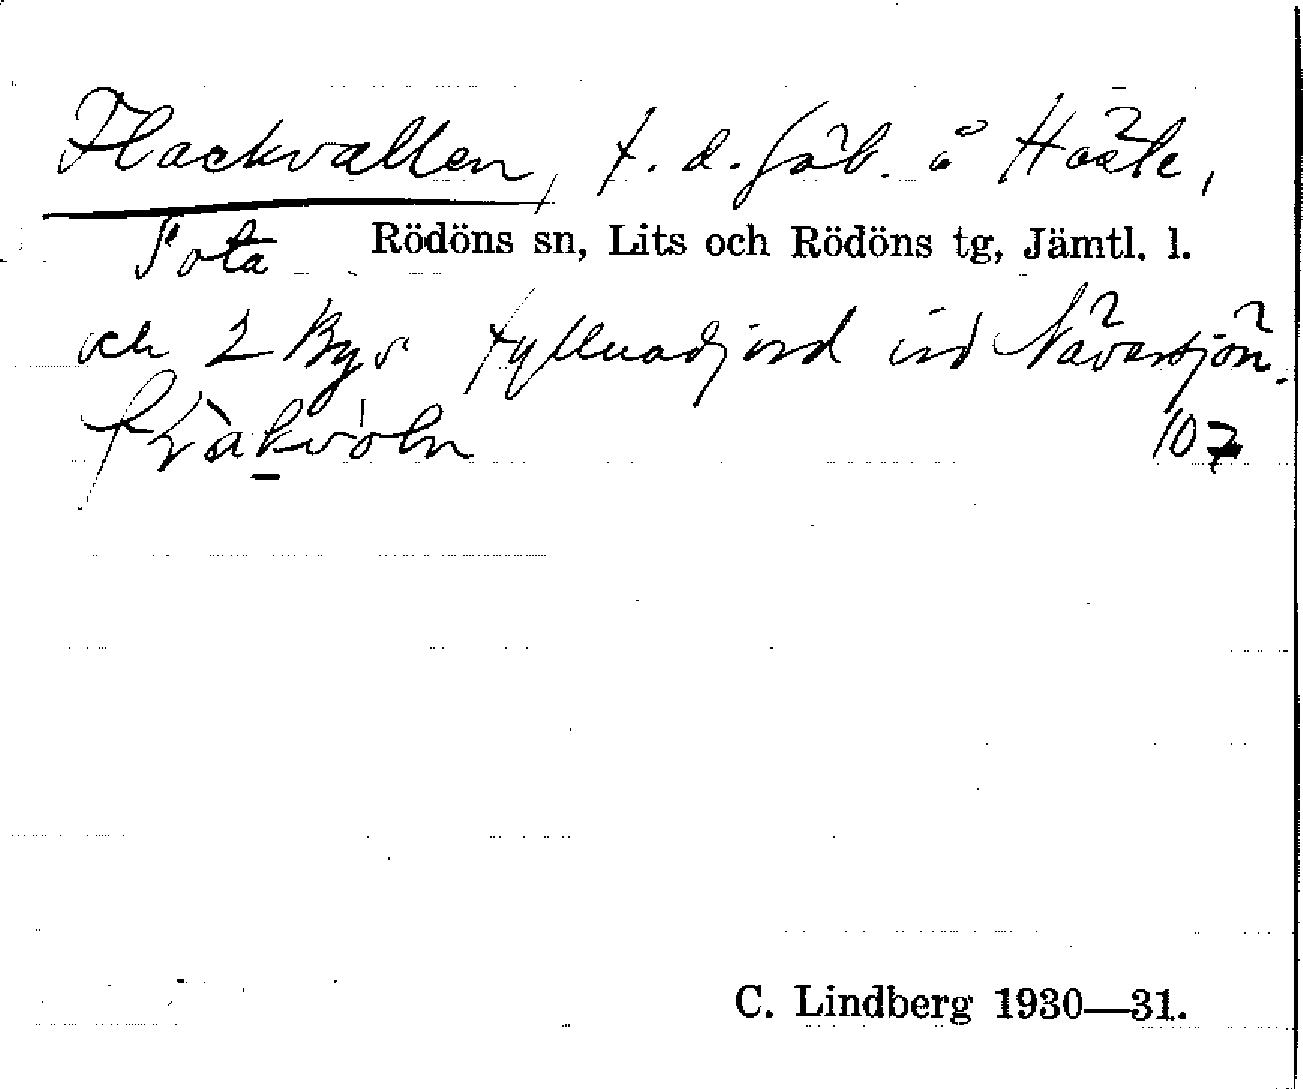 Flackvallen, f. d. fäb. å Håste,
Tota Rödöns sn, Lits och Rödöns tg, Jämtl. l.
och 2 Bys fyllnadjord vid Nävarsjön.
107
C. Lindberg 1930—31.